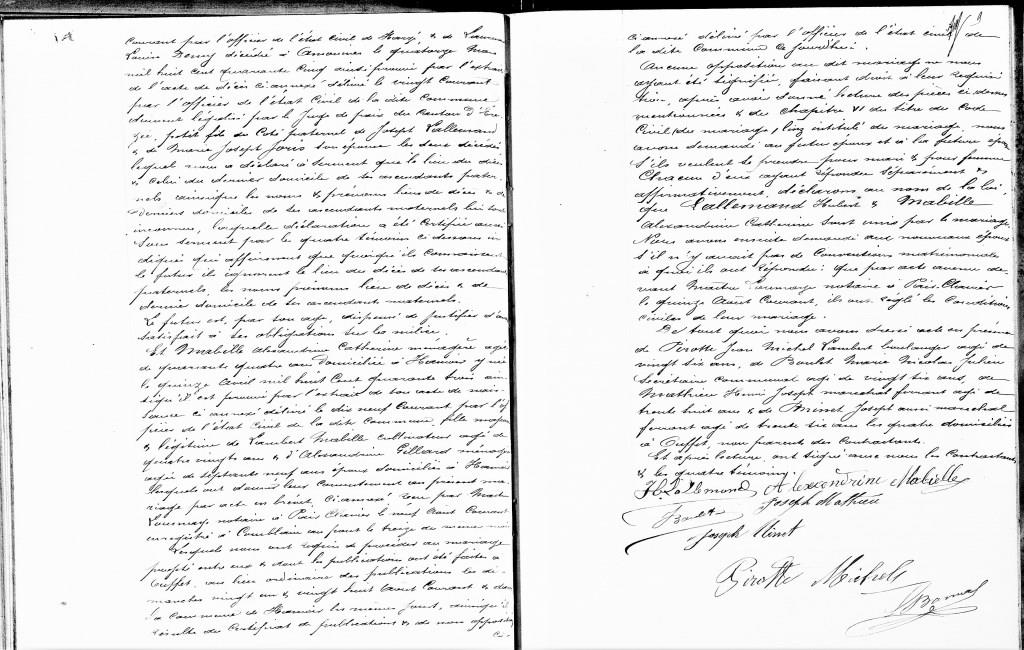 courant par l'officier de l'état civil de Havez, & de
Louise Remy décédée à Amonines le quatorze Mai
mil huit cent quarante cinq ainsi prouvé par l'extrait
de l'acte de décès ci annexé délivré le vingt Courant
par l'officier de l'état Civil de la dite Commune
dument légalisé par le Juge de paix du Canton d'
petit fils du Coté paternel de Joseph Lallemand
& de Marie Joseph Joris son épouse les deux décédés
lequel nous a déclaré à serment que le lieu du décès
& celui du dernier domicile de ses ascendants pater
nels ainsi que les noms & prénoms lieu de décès & de
derniers domicile de ses ascendants maternels lui sont
inconnus, laquelle déclaration a été certifiée aussi
sous serment par les quatre témoins ci dessous in
diqués qui affirment que quoiqu'ils connaissent
le futur ils ignorent le lieu des décès de ses ascendants
paternels, les noms prénoms lieu de décès & de
dernier domicile de ses ascendants maternels.
Le futur est, par son age, dispensé de justifier d'avoir
satisfait à ses obligations sur les milices.
Et Mabille Alexandrine Catherine ménagère agée
de quarante quatre ans domiciliée à Hamoir y née
le quinze Avril mil huit Cent quarante trois ain
siqu'il est prouvé par l'extrait de son acte de nais
sance ci annexé délivré le dix neuf Courant par l'of
ficier de l'état Civil de la dite commune, fille majeure
& légitime de Lambert Mabille cultivateur agé de
quatre vingts ans & d'Alexandrine Gillard ménagère
agée de septante neuf ans époux domiciliés à Hamoir
lesquels ont donné leur consentement au présent ma
riage par act en brévet, ci annexé reçu par Maitre
Lounay notaire à Pair Clavier le neuf Aout Courant
enregistré à Comblain au pont le treize du meme mois
Lesquels nous ont requis de procéder au mariage
projeté entre eux & dont les publications ont été faites à
Ouffet, au lieu ordinaire des publications les di
manches vingt un & vingt huit Aout Courant & dans
la commune de Hamoir les mêmes jours, ainsiqu'il
résulte du Certificat de publications & de non opposition
ci annexé délivré par l'officier de l'état civil de
la dite Commune ce jourdhui.
Aucune opposition au dit mariage ne nous
ayant été signifiée, faisant droit à leur réquisi
tion, après avoir donné lecture des pièces ci dessus
mentionnées & du chapitre VI du titre du Code
Civil (du mariage) cinq intitulé du mariage, nous
avons demandé au futur époux et à la future épouse
s'ils veulent se prendre pour mari & pour femme
Chacun d'eux ayant répondu séparément &
affirmativement, déclarons au nom de la loi
que Lallemand Hubert & Mabille
Alexandrine Catherine sont unis par le mariage.
Nous avons ensuite demandé aux nouveaux époux
s'il n'y avait pas de Conventions matrimoniales
à quoi ils ont répondu: que par act avenu de
vant Maitre Lounay notaire à Pair Clavier
le quinze Aout Courant, ils ont réglé les Conditions
civiles de leur mariage.
De tout quoi nous avons dressé act en présence
de Pirotte Jean Michel Lambert boulanger agé de
vingt six ans, de Boulet Marie Nicolas Julien
Secrétaire communal agé de vingt six ans, de
Mathieu Henri Joseph marechal ferrant agé de
trente huit ans & de Ninet Joseph aussi marechal
ferrant agé de trente six ans les quatre domiciliés
à Ouffet, non parents des Contractants.
Et après lecture, ont signé avec nous les Contractants
& les quatre témoins.
H Lallemand Alexendrine Mabille
Boulet Joseph Mathieu
Joseph Ninet
Pirotte Michels